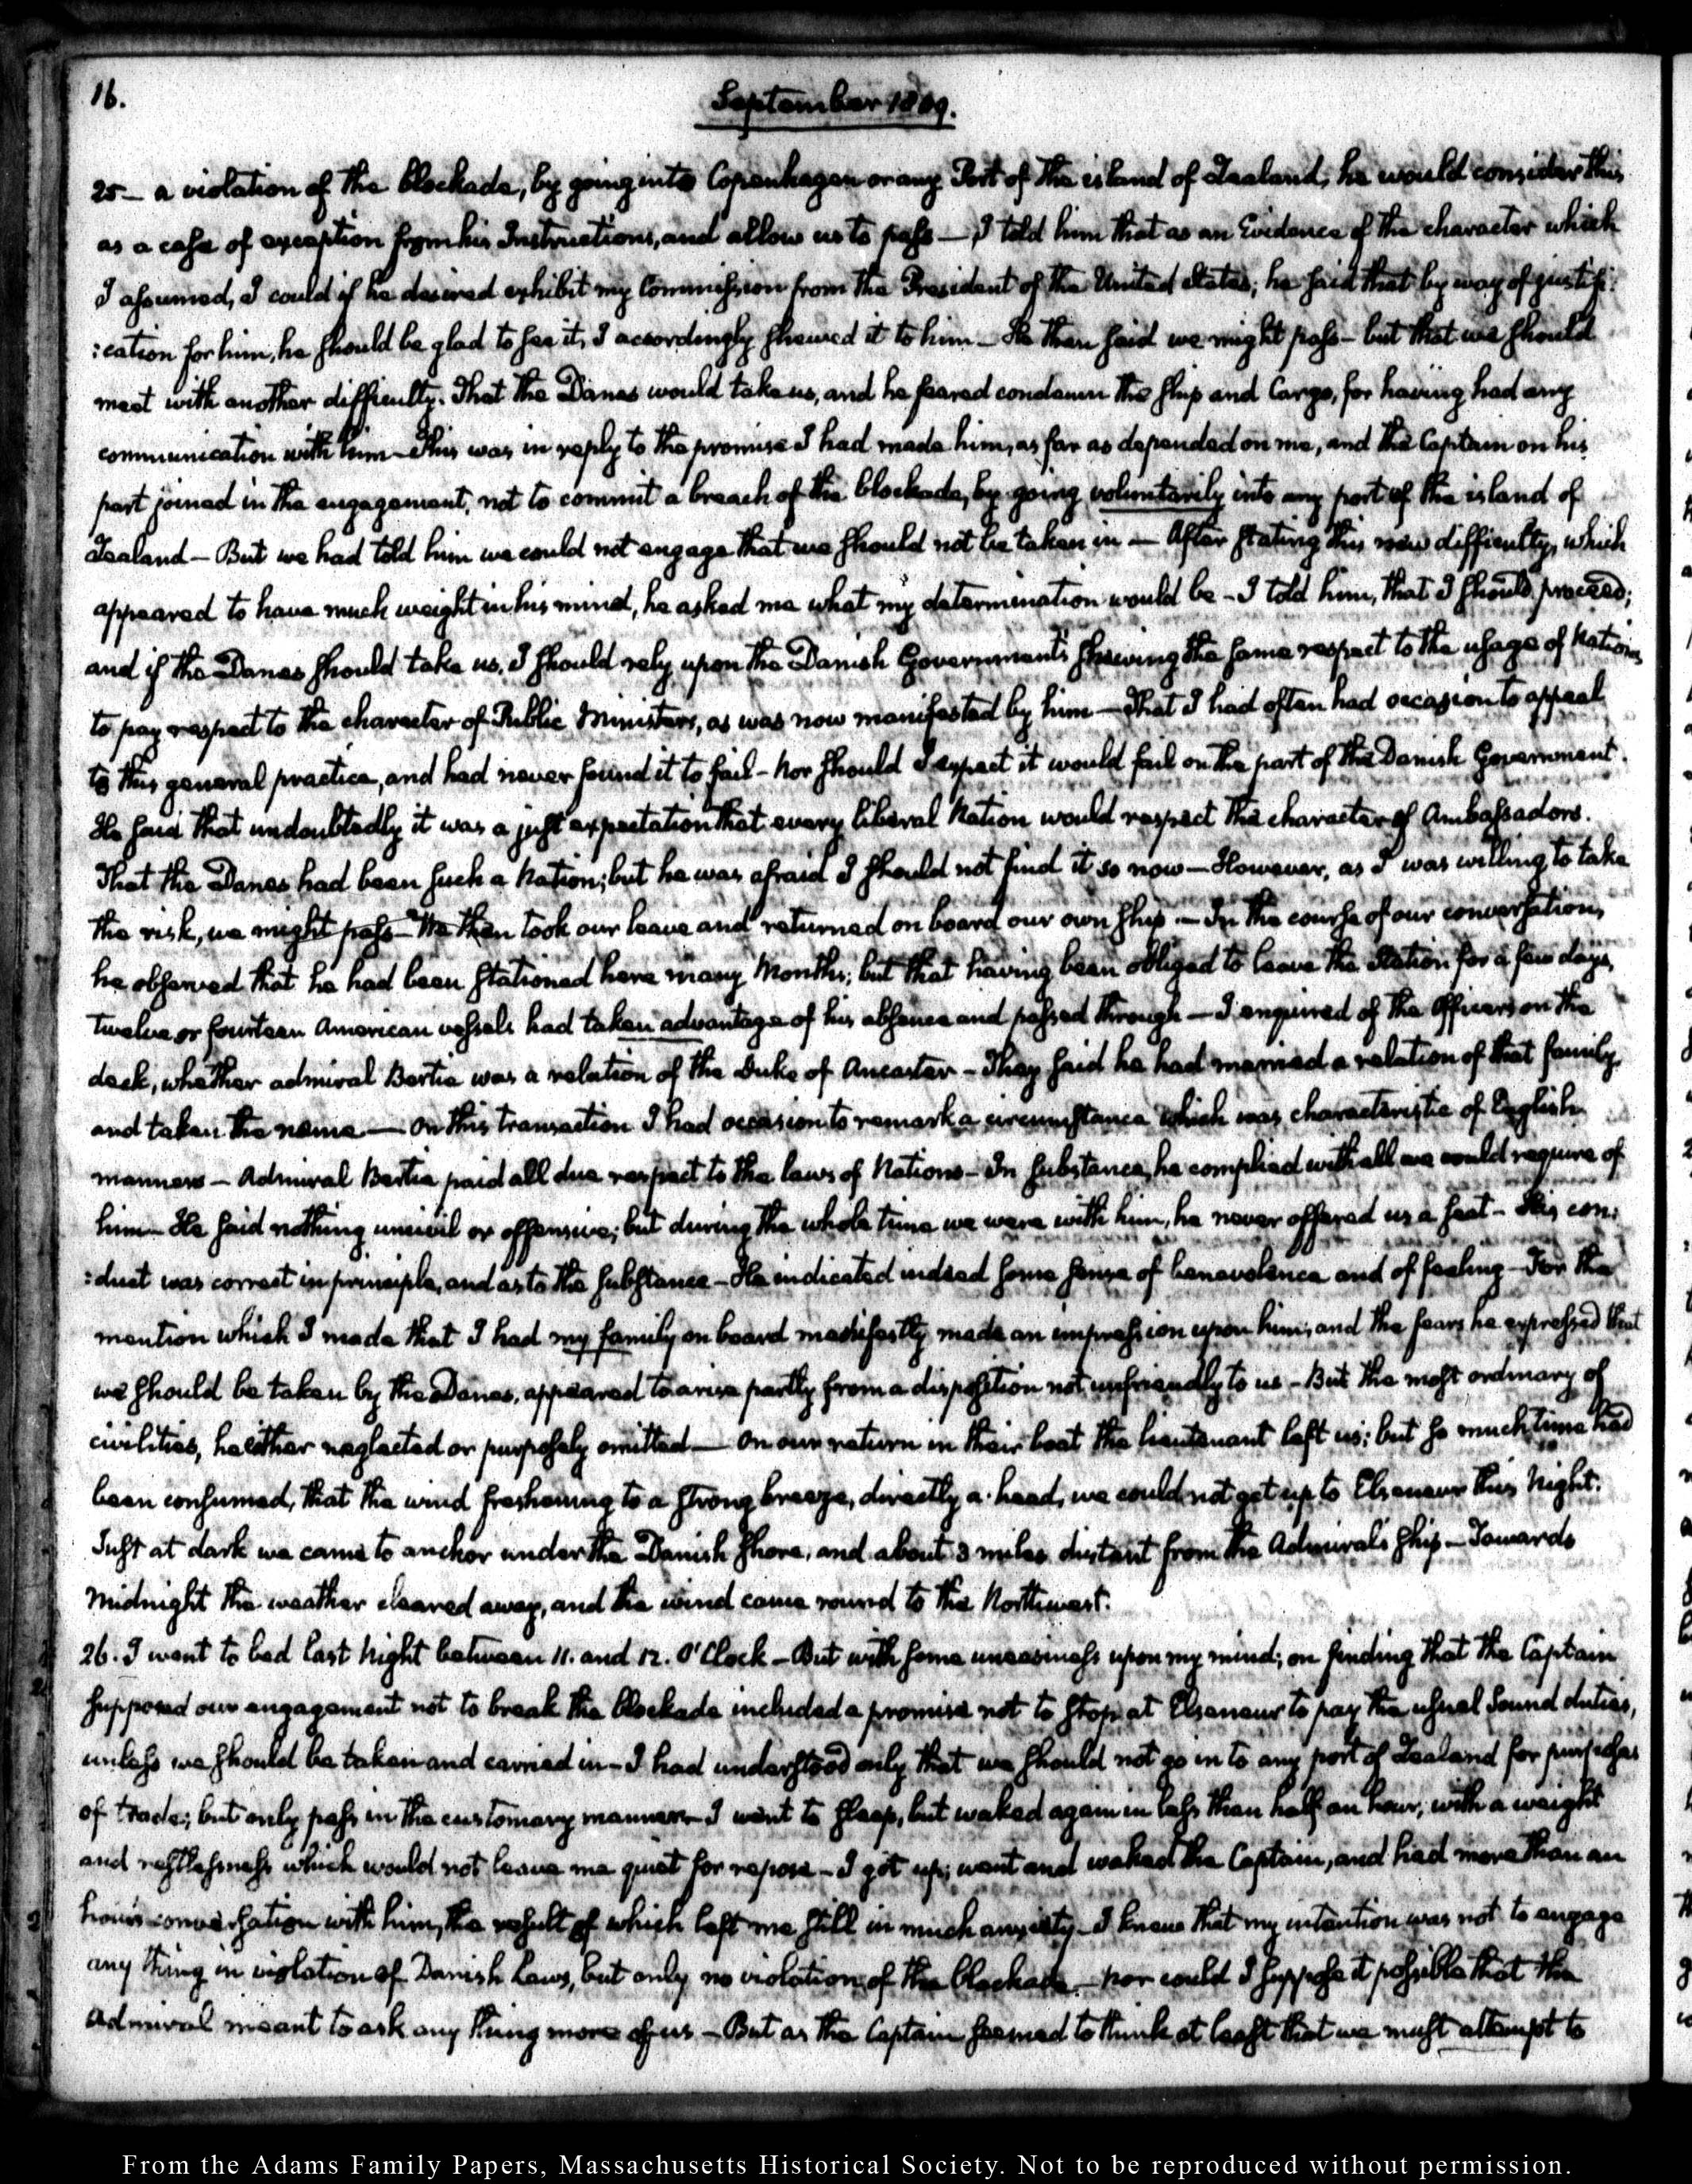 16.
September 1809.
25— a violation of the blockade, by going into Copenhagen or any Port of the island of Zealand, he would consider this
as a case of exception from his Instructions, and allow us to pass — I told him that as an Evidence of the character which
I assumed, I could if he desired exhibit my Commission from the President of the United States; he said that by way of justifi:
:cation for him, he should be glad to see it, I accordingly shewed it to him — He then said we might pass — but that we should
meet with another difficulty. That the Danes would take us, and he feared condemn the ship and Cargo, for having had any
communication with him — This was in reply to the promise I had made him, as far as depended on me, and the Captain on his
part joined in the engagement, not to commit a breach of the blockade, by going voluntarily into any port of the island of
Zealand — But we had told him we could not engage that we should not be taken in — After stating this new difficulty, which
appeared to have much weight in his mind, he asked me what my determination would be — I told him, that I should proceed;
and if the Danes should take us, I should rely upon the Danish Government's shewing the same respect to the usage of Nations
to pay respect to the character of Public Ministers, as was now manifested by him — That I had often had occasion to appeal
to this general practice, and had never found it to fail — Nor should I expect it would fail on the part of the Danish Government.
He said that undoubtedly it was a just expectation that every liberal Nation would respect the character of Ambassadors.
That the Danes had been such a Nation; but he was afraid I should not find it so now — However, as I was willing to take
the risk, we might pass — We then took our leave and returned on board our own ship. — In the course of our conversation,
he observed that he had been stationed here many Months; but that having been obliged to leave the Station for a few days,
twelve or fourteen American vessels had taken advantage of his absence and passed through — I enquired of the Officers on the
deck, whether admiral Bertie was a relation of the Duke of Ancaster — They said he had married a relation of that family,
and taken the name — On this transaction I had occasion to remark a circumstance which was characteristic of English
manners — Admiral Bertie paid all due respect to the laws of Nations — In substance, he complied with all we could require of
him — He said nothing uncivil or offensive; but during the whole time we were with him, he never offered us a seat — His con:
:duct was correct in principle, and as to the substance — He indicated indeed some sense of benevolence and of feeling — For the
mention which I made that I had my family on board manifestly made an impression upon him, and the fears he expressed that
we should be taken by the Danes, appeared to arise partly from a disposition not unfriendly to us — But the most ordinary of
civilities, he either neglected or purposely omitted — On our return in their boat the lieutenant left us; but so much time had
been consumed, that the wind freshening to a strong breeze, directly a-head, we could not get up to Elseneur this Night.
Just at dark we came to anchor under the Danish shore, and about 3 miles distant from the Admiral's ship — Towards
Midnight the weather cleared away, and the wind came round to the Northwest.
26. I went to bed last Night between 11. and 12. O'Clock — But with some uneasiness upon my mind; on finding that the Captain
supposed our engagement not to break the blockade included a promise not to stop at Elseneur to pay the usual Sound duties,
unless we should be taken and carried in — I had understood only that we should not go in to any port of Zealand for purposes
of trade; but only pass in the customary manner — I went to sleep, but waked again in less than half an hour; with a weight
and restlessness which would not leave me quiet for repose — I got up; went and waked the Captain, and had more than an
hour's conversation with him, the result of which left me still in much anxiety — I knew that my intention was not to engage
any thing in violation of Danish Laws, but only no violation of the blockade — nor could I suppose it possible that the
Admiral meant to ask any thing more of us. — But as the Captain seemed to think at least that we must attempt to
From the Adams Family Papers, Massachusetts Historical Society. Not to be reproduced without permission.